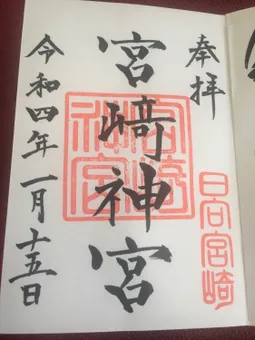 奉拝
日向宮崎
宮﨑神宮
宮崎
神宮
令和四年一月十五日